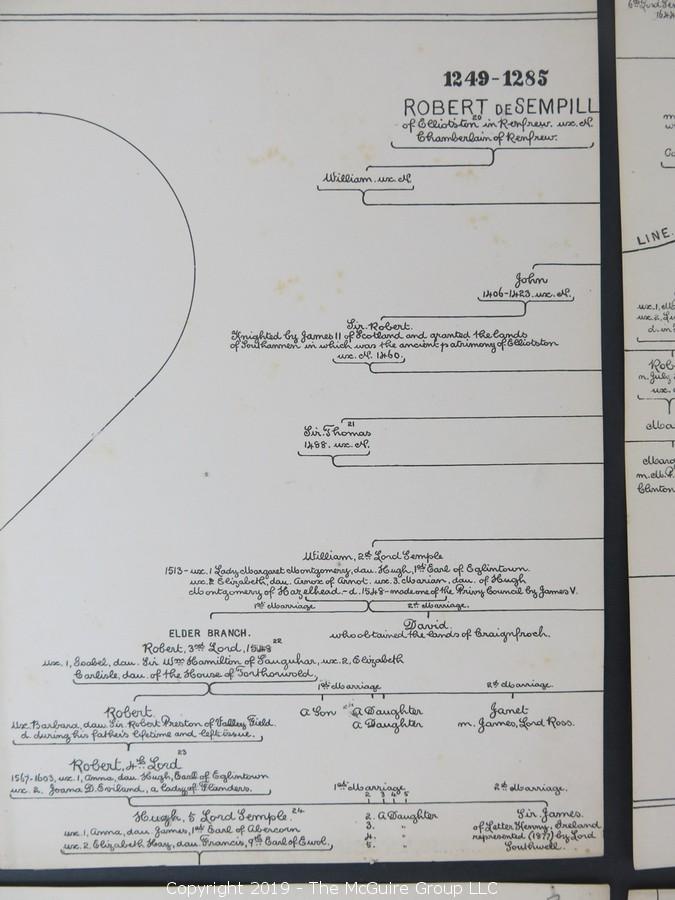 1249-1285
ROBERT DE SEMPILL
of Elliotston 20 in Renfrew. ux. N.
Chamberlain of Renfrew.
William. ux. N.
John
1406-1423. ux. N.
Sir Robert.
Knighted by James II of Scotland and granted the lands
of Southannen in which was the ancient patrimony of Elliotston
ux. N. 1460.
Sir Thomas 21
1488. ux. N.
William, 2nd Lord Semple
1513 - ux. 1 Lady Margaret Montgomery, dau. Hugh, 1st Earl of Eglintown.
ux. 2. Elizabeth, dau. Arnox of Arnot. ux. 3. Marian, dau. of Hugh
Montgomery of Hazelhead. - d. 1548 - made one of the Privy Council by James V.
1st Marriage 2nd Marriage.
David.
who obtained the lands of Craignfroch.
ELDER BRANCH.
Robert, 3rd Lord, 1548 22
ux. 1, Isabel, dau. Sir Wm Hamilton of Sanquhar, ux. 2, Elizabeth
Carlisle, dau. of the House of Torthorwold,
1st Marriage 2nd Marriage.
Robert
Ux. Barbara, dau. Sir Robert Preston of Valley Field.
d. during his father's lifetime and left issue.
A Son A Daughter
A Daughter
Janet
m. James, Lord Ross.
Robert, 4th Lord 23
1567-1603, ux. 1, Anna, dau. Hugh, Earl of Eglintown
ux. 2. Joana D. Eviland, a lady of Flanders.
1st Marriage 2nd Marriage.
2 3 4 5
Hugh, 5 Lord Semple. 24
ux. 1, Anna, dau. James, 1st Earl of Abercorn
ux. 2. Elizabeth Hay, dau. Francis, 9th Earl of Errol,
2. A Daughter
3. "
4. "
5. "
Sir James.
of Letter Kenny, Ireland
represented (1877) by Lord
Southwell.
LINE
ux. 1,
ux. 2,
m. July
ux.
Clinton
Copyright 2019 - The McGuire Group LLC